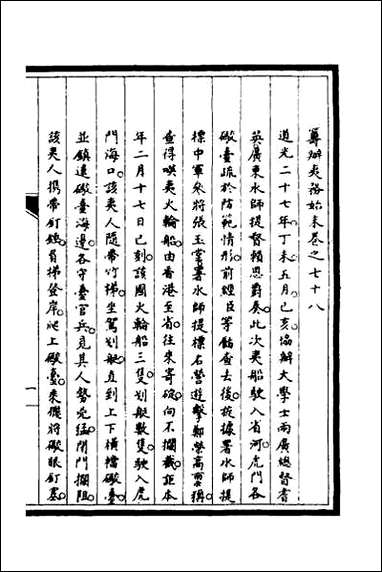 籌辦夷務始末卷之七十八
道光二十七年丁未五月己亥協辦大學士兩廣總督耆
英廣東水師提督賴恩爵奏此次夷船駛入省河虎門各
礮臺疏於防範情形前經臣等飭查去後茲據署水師提
標中軍參將張玉堂署水師提標右營遊擊鄭榮高稟稱
查得㗸夷火輪船由香港至省往來寄碇向不攔截詎本
年二月十七日巳刻該國火輪船三隻划艇數隻駛入虎
門海口該夷人隨帶竹梯坐駕划艇直到上下橫檔礮臺
並鎮遠礮臺海邊各守臺官兵見其人勢兇猛閉門攔阻
該夷人攜帶釘鎚肩梯登岸爬上礮臺乘機將礮眼釘塞
一